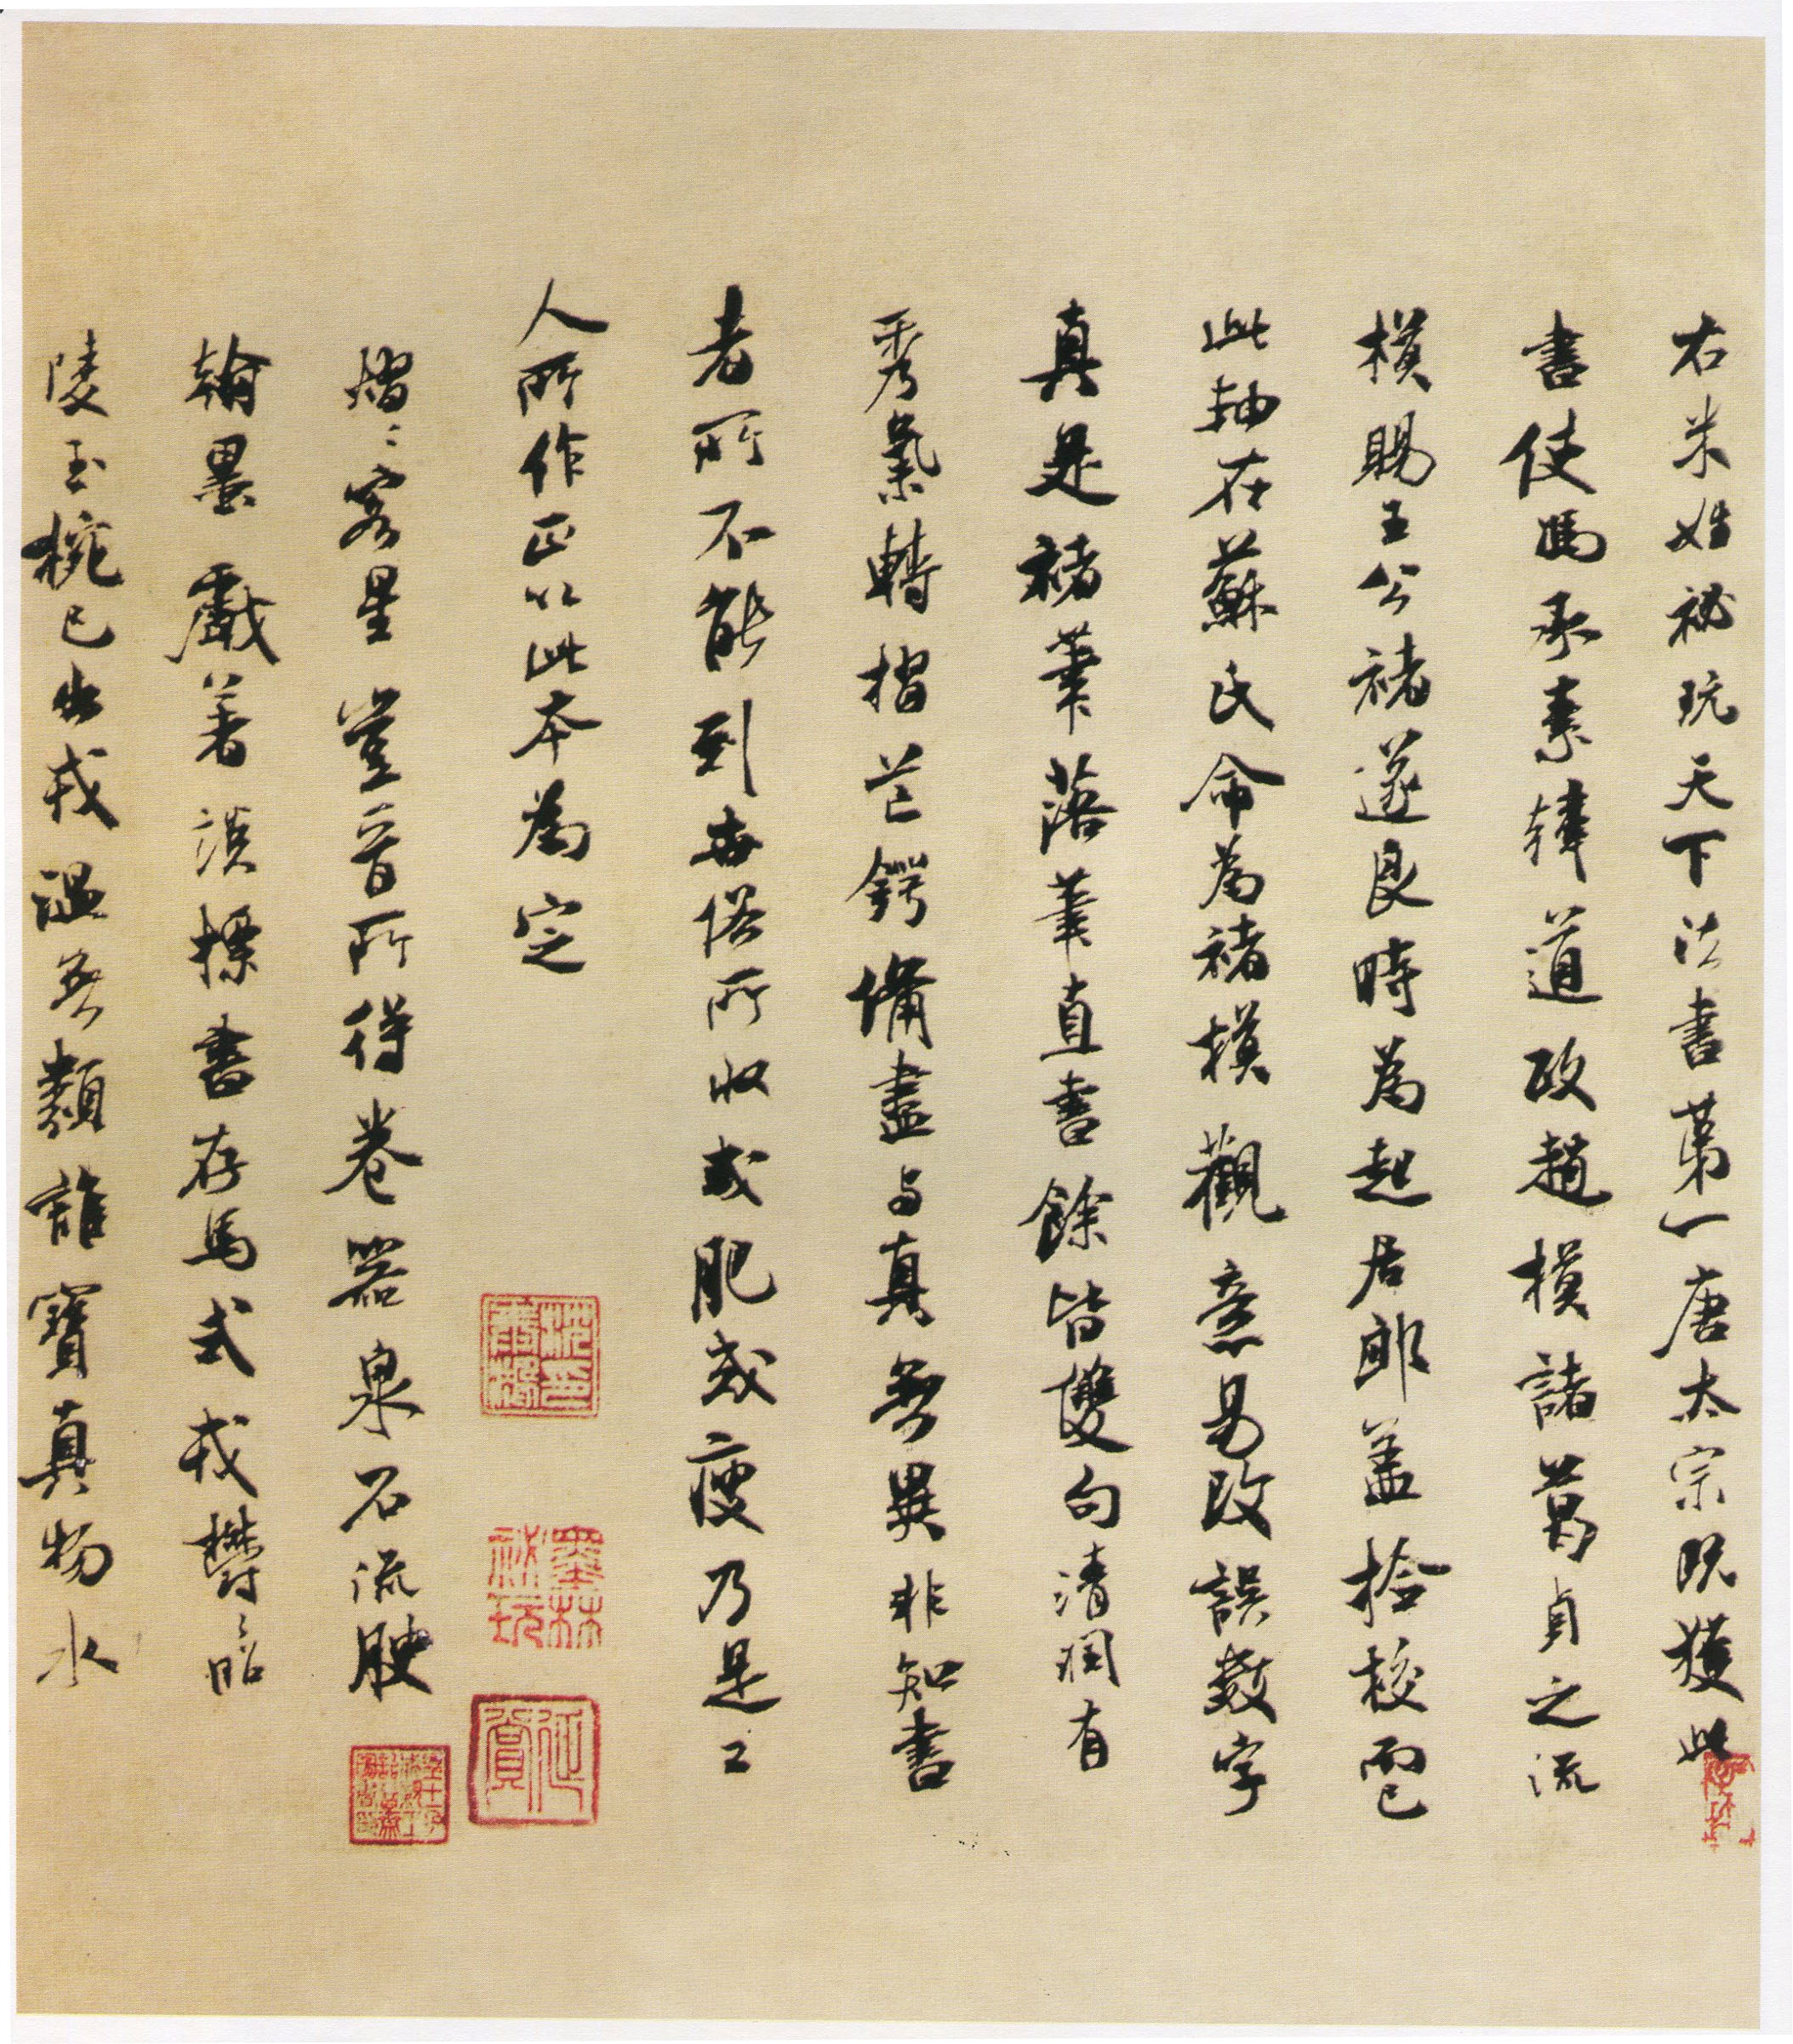 右米姓祕玩天下法書第一唐太宗既獲此
書使馮承素韓道政趙模諸葛貞之流
模賜王公褚遂良時為起居郎蓋撿校而已
此軸在蘇氏命為褚模觀意易改誤數字
真是褚筆落筆直書餘皆雙勾清潤有
秀氣轉摺芒鍔備盡与真無異非知書
者所不能到世俗所收或肥或瘦乃是工
人所作正以此本為定
熠〻客星豈晉所得卷器泉石流腴
翰墨戲著談標書存馬式戎鬱〻昭
陵玉椀已出戎溫無類誰寶真物水
墨林
祕玩